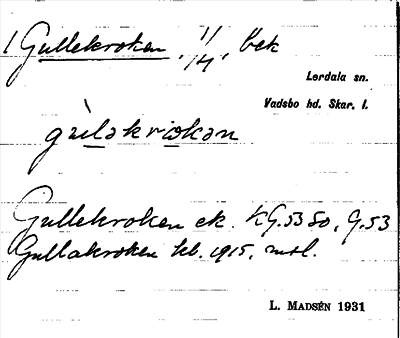 1 Gullekroken, 1/1 1/4, bek
Lerdala sn.
Vadsbo hd. Skar. l.
gùləkrωkən
Gullekroken ek. KG.53 So, G.53
Gullakroken hb. 1915, mtl.
L. MADSÉN 1931